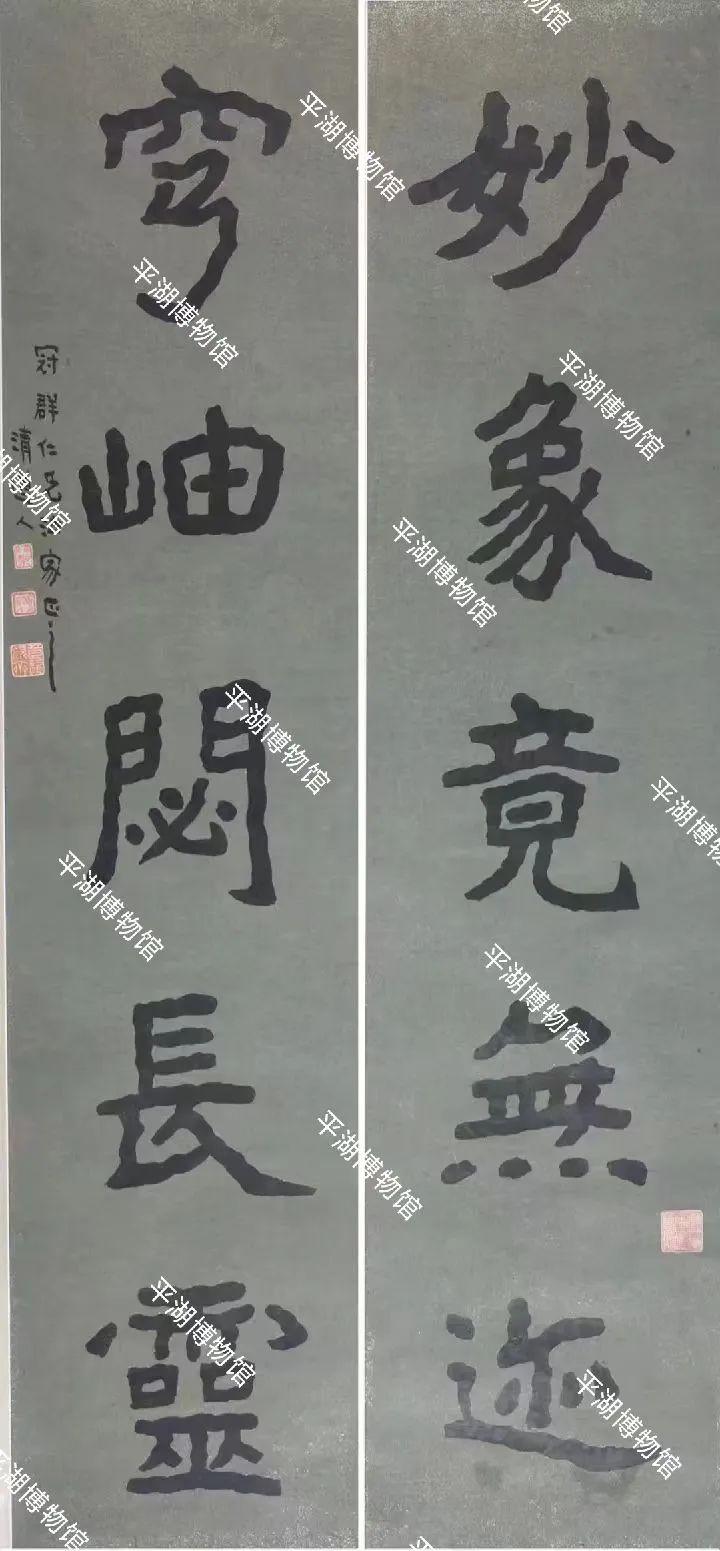 妙象竟無迹
穹岫閟長靈
冠群仁兄法家正之
清道人
平湖博物馆
平湖博物馆
平湖博物馆
平湖博物馆
平湖博物馆
平湖博物馆
平湖博物馆
平湖博物馆
平湖博物馆
平湖博物馆
平湖博物馆
平湖博物馆